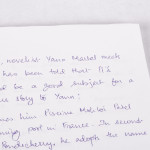 , novelist Yann Martel mack
has been told that it's
d be a good subject for a
ue story to Yann:
mes him Piscine Molitor Patel
ming pool in France. In second
Pondicherry, he adopts the name